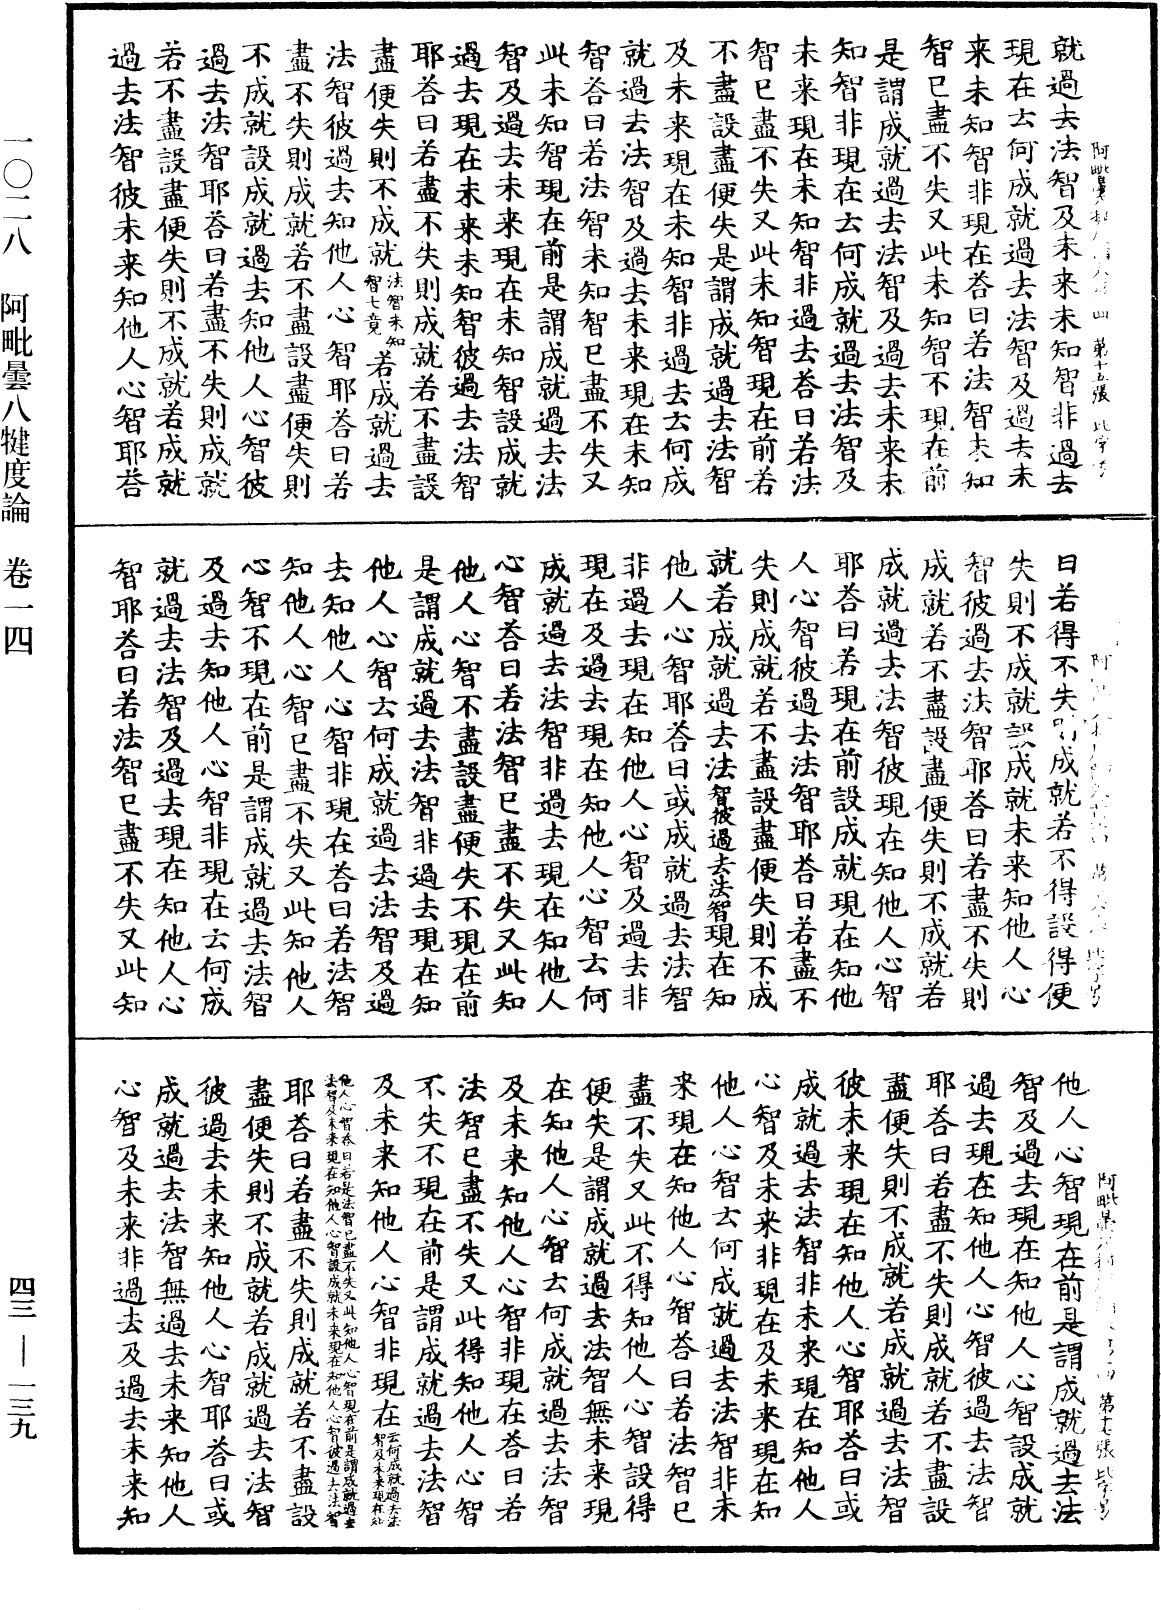 就過去法智及未来未知智非過去
現在云何成就過去法智及過去未
来未知智非現在荅曰若法智未知
智已盡不失又此未知智不現在前
是謂成就過去法智及過去未来未
知智非現在云何成就過去法智及
未来現在未知智非過去荅曰若法
智已盡不失又此未知智現在前若
不盡設盡便失是謂成就過去法智
及未来現在未知智非過去云何成
就過去法智及過去未来現在未知
智荅曰若法智未知智已盡不失又
此未知智現在前是謂成就過去法
智及過去未来現在未知智設成就
過去現在未来未知智彼過去法智
耶荅曰若盡不失則成就若不盡設
盡便失則不成就法智未知智七竟若成就過去
法智彼過去知他人心智耶荅曰若
盡不失則成就若不盡設盡便失則
不成就設成就過去知他人心智彼
過去法智耶荅曰若盡不失則成就
若不盡設盡便失則不成就若成就
過去法智彼未来知他人心智耶荅
曰若得不失則成就若不得設得便
失則不成就設成就未来知他人心
智彼過去法智耶荅曰若盡不失則
成就若不盡設盡便失則不成就若
成就過去法智彼現在知他人心智
耶荅曰若現在前設成就現在知他
人心智彼過去法智耶荅曰若盡不
失則成就若不盡設盡便失則不成
就若成就過去法智彼過去法智現在知
他人心智耶荅曰或成就過去法智
非過去現在知他人心智及過去非
現在及過去現在知他人心智云何
成就過去法智非過去現在知他人
心智荅曰若法智已盡不失又此知
他人心智不盡設盡便失不現在前
是謂成就過去法智非過去現在知
他人心智云何成就過去法智及過
去知他人心智非現在荅曰若法智
知他人心智已盡不失又此知他人
心智不現在前是謂成就過去法智
及過去知他人心智非現在云何成
就過去法智及過去現在知他人心
智耶荅曰若法智已盡不失又此知
他人心智現在前是謂成就過去法
智及過去現在知他人心智設成就
過去現在知他人心智彼過去法智
耶荅曰若盡不失則成就若不盡設
盡便失則不成就若成就過去法智
彼未来現在知他人心智耶荅曰或
成就過去法智非未来現在知他人
心智及未来非現在及未来現在知
他人心智云何成就過去法智非未
来現在知他人心智荅曰若法智已
盡不失又此不得知他人心智設得
便失是謂成就過去法智無未来現
在知他人心智云何成就過去法智
及未来知他人心智非現在荅曰若
法智已盡不失又此得知他人心智
不失不現在前是謂成就過去法智
及未来知他人心智非現在云何成就過去法智及未来現在知
他人心智荅曰若是法智已盡不失又此知他人心智現在前是謂成就過去
法智及未来現在知他人心智設成就未来現在知他人心智彼過去法智
耶荅曰若盡不失則成就若不盡設
盡便失則不成就若成就過去法智
彼過去未来知他人心智耶荅曰或
成就過去法智無過去未来知他人
心智及未来非過去及過去未来知
一〇二八 阿毗曇八犍度論 卷一四
四三—一三九